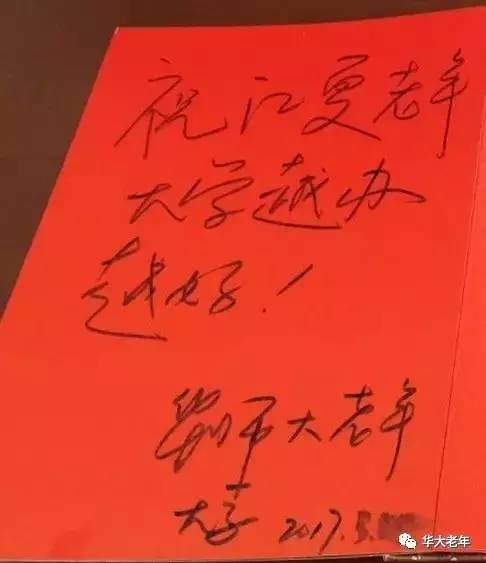 祝江夏老年
大学越办
越好！
华师大老年
大学 2017.5.
华大老年